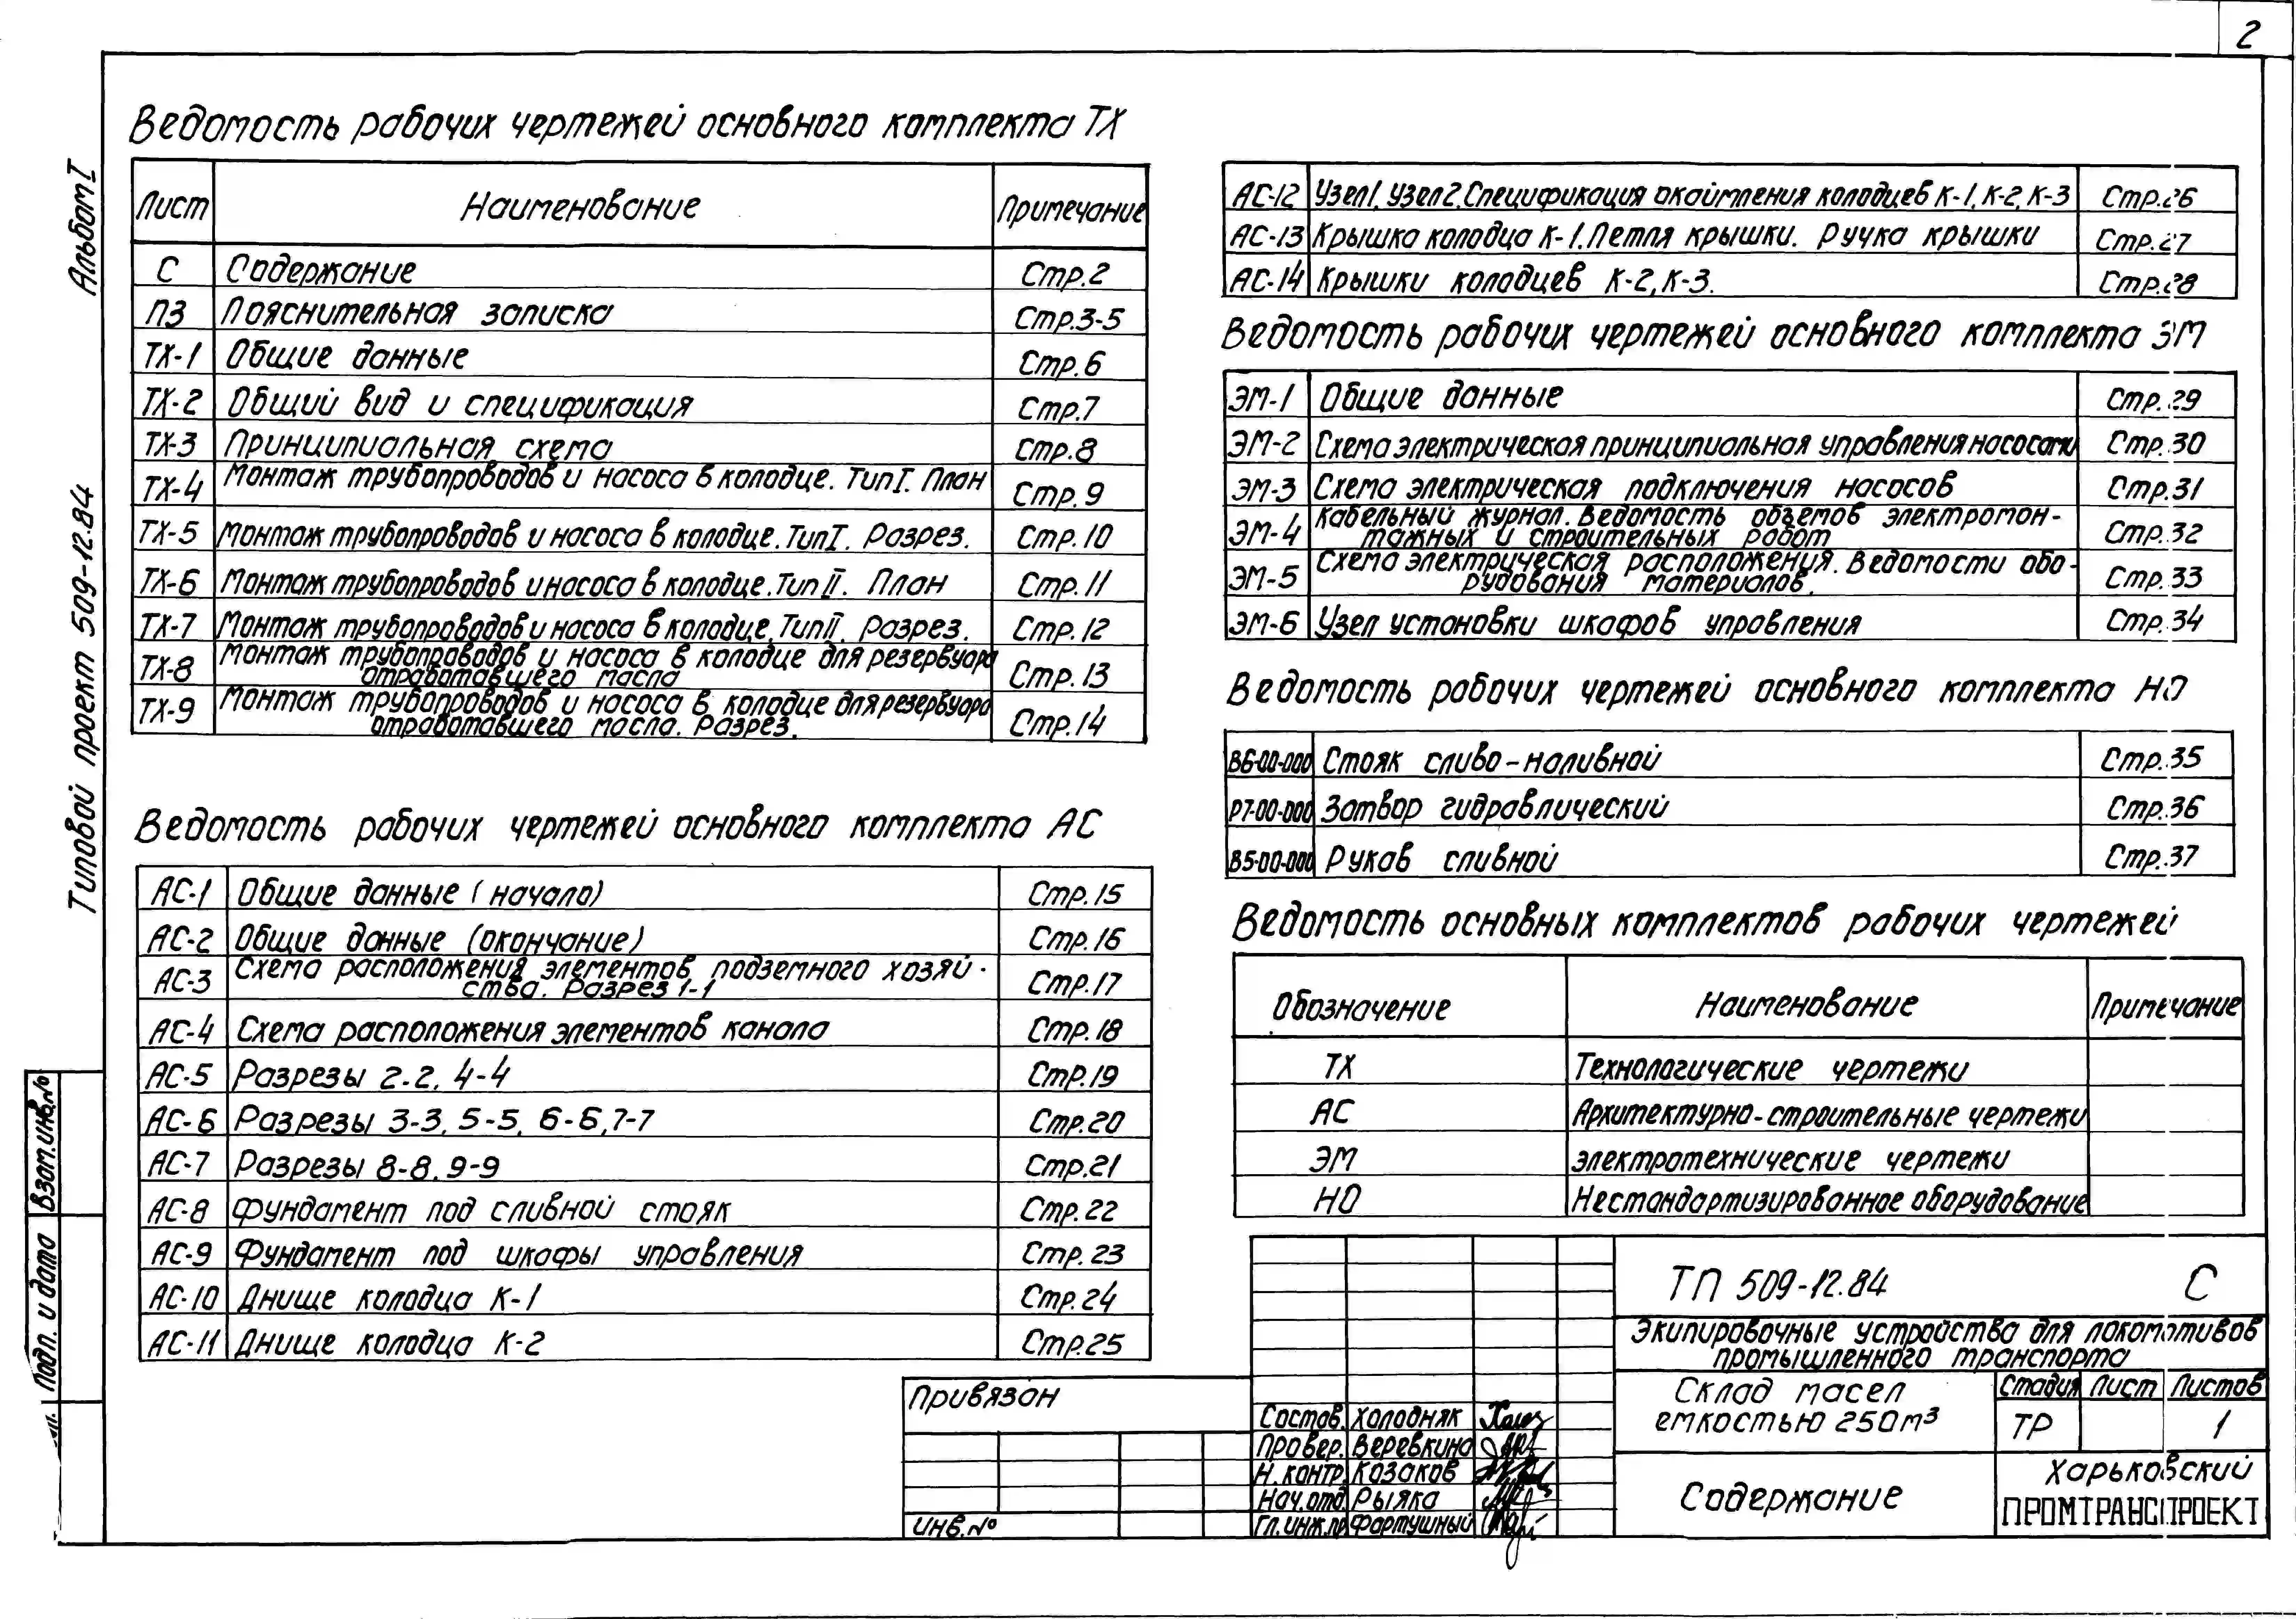 2
Альбом I
Типовой проект 509-12.84
Взам.инв.№
Подп. и дата
Ведомость рабочих чертежей основного комплекта ТХ
Лист Наименование Примечание
С Содержание Стр.2
ПЗ Пояснительная записка Стр.3-5
ТХ-1 Общие данные Стр.6
ТХ-2 Общий вид и спецификация Стр.7
ТХ-3 Принципиальная схема Стр.8
ТХ-4 Монтаж трубопроводов и насоса в колодце. Тип I. План Стр.9
ТХ-5 Монтаж трубопроводов и насоса в колодце. Тип I. Разрез. Стр.10
ТХ-6 Монтаж трубопроводов и насоса в колодце. Тип II. План Стр.11
ТХ-7 Монтаж трубопроводов и насоса в колодце. Тип II. Разрез. Стр.12
ТХ-8 Монтаж трубопроводов и насоса в колодце для резервуара
отработавшего масла Стр.13
ТХ-9 Монтаж трубопроводов и насоса в колодце для резервуара
отработавшего масла. Разрез. Стр.14
Ведомость рабочих чертежей основного комплекта АС
АС-1 Общие данные (начало) Стр.15
АС-2 Общие данные (окончание) Стр.16
АС-3 Схема расположения элементов подземного хозяй-
ства. Разрез 1-1 Стр.17
АС-4 Схема расположения элементов канала Стр.18
АС-5 Разрезы 2-2, 4-4 Стр.19
АС-6 Разрезы 3-3, 5-5, 6-6, 7-7 Стр.20
АС-7 Разрезы 8-8, 9-9 Стр.21
АС-8 Фундамент под сливной стояк Стр.22
АС-9 Фундамент под шкафы управления Стр.23
АС-10 Днище колодца К-1 Стр.24
АС-11 Днище колодца К-2 Стр.25
АС-12 Узел 1. Узел 2. Спецификация окаймления колодцев К-1, К-2, К-3 Стр.26
АС-13 Крышка колодца К-1. Петля крышки. Ручка крышки Стр.27
АС-14 Крышки колодцев К-2, К-3. Стр.28
Ведомость рабочих чертежей основного комплекта ЭМ
ЭМ-1 Общие данные Стр.29
ЭМ-2 Схема электрическая принципиальная управления насосами Стр.30
ЭМ-3 Схема электрическая подключения насосов Стр.31
ЭМ-4 Кабельный журнал. Ведомость объемов электромон-
тажных и строительных работ Стр.32
ЭМ-5 Схема электрическая расположения. Ведомости обо-
рудования материалов. Стр.33
ЭМ-6 Узел установки шкафов управления Стр.34
Ведомость рабочих чертежей основного комплекта НО
В6-00-000 Стояк сливо-наливной Стр.35
Р7-00-000 Затвор гидравлический Стр.36
В5-00-000 Рукав сливной Стр.37
Ведомость основных комплектов рабочих чертежей
Обозначение Наименование Примечание
ТХ Технологические чертежи
АС Архитектурно-строительные чертежи
ЭМ Электротехнические чертежи
НО Нестандартизированное оборудование
ТП 509-12.84 С
Экипировочные устройства для локомотивов
промышленного транспорта
Склад масел
емкостью 250м³
Стадия Лист Листов
ТР 1
Содержание
Харьковский
ПРОМТРАНСПРОЕКТ
Состав. Холодняк
Провер. Веревкина
Н.контр. Казаков
Нач.отд. Рыяка
Гл.инж.пр. Фартушный
Привязан
Инв.№